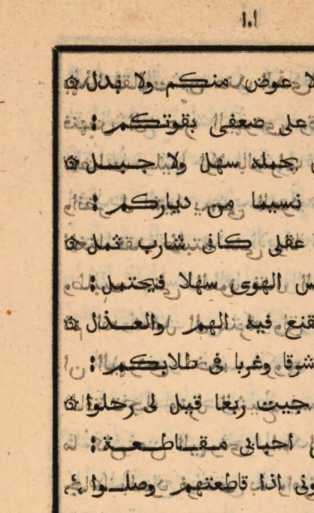 ١٠١
لا عوض منكم ولا بدل
على ضعفى بقوتكم
بحبله سهل ولا جبل
نسيما من دياركم
عقلى كانى شارب ثمل
الهوى سهلا فيحتمل
فيه الهم والعذال
شرقا وغربا فى طلابكم
جيت ربعا قيل لى رحلوا
احبابى مقاطعة
اذا قاطعتهم وصلوا